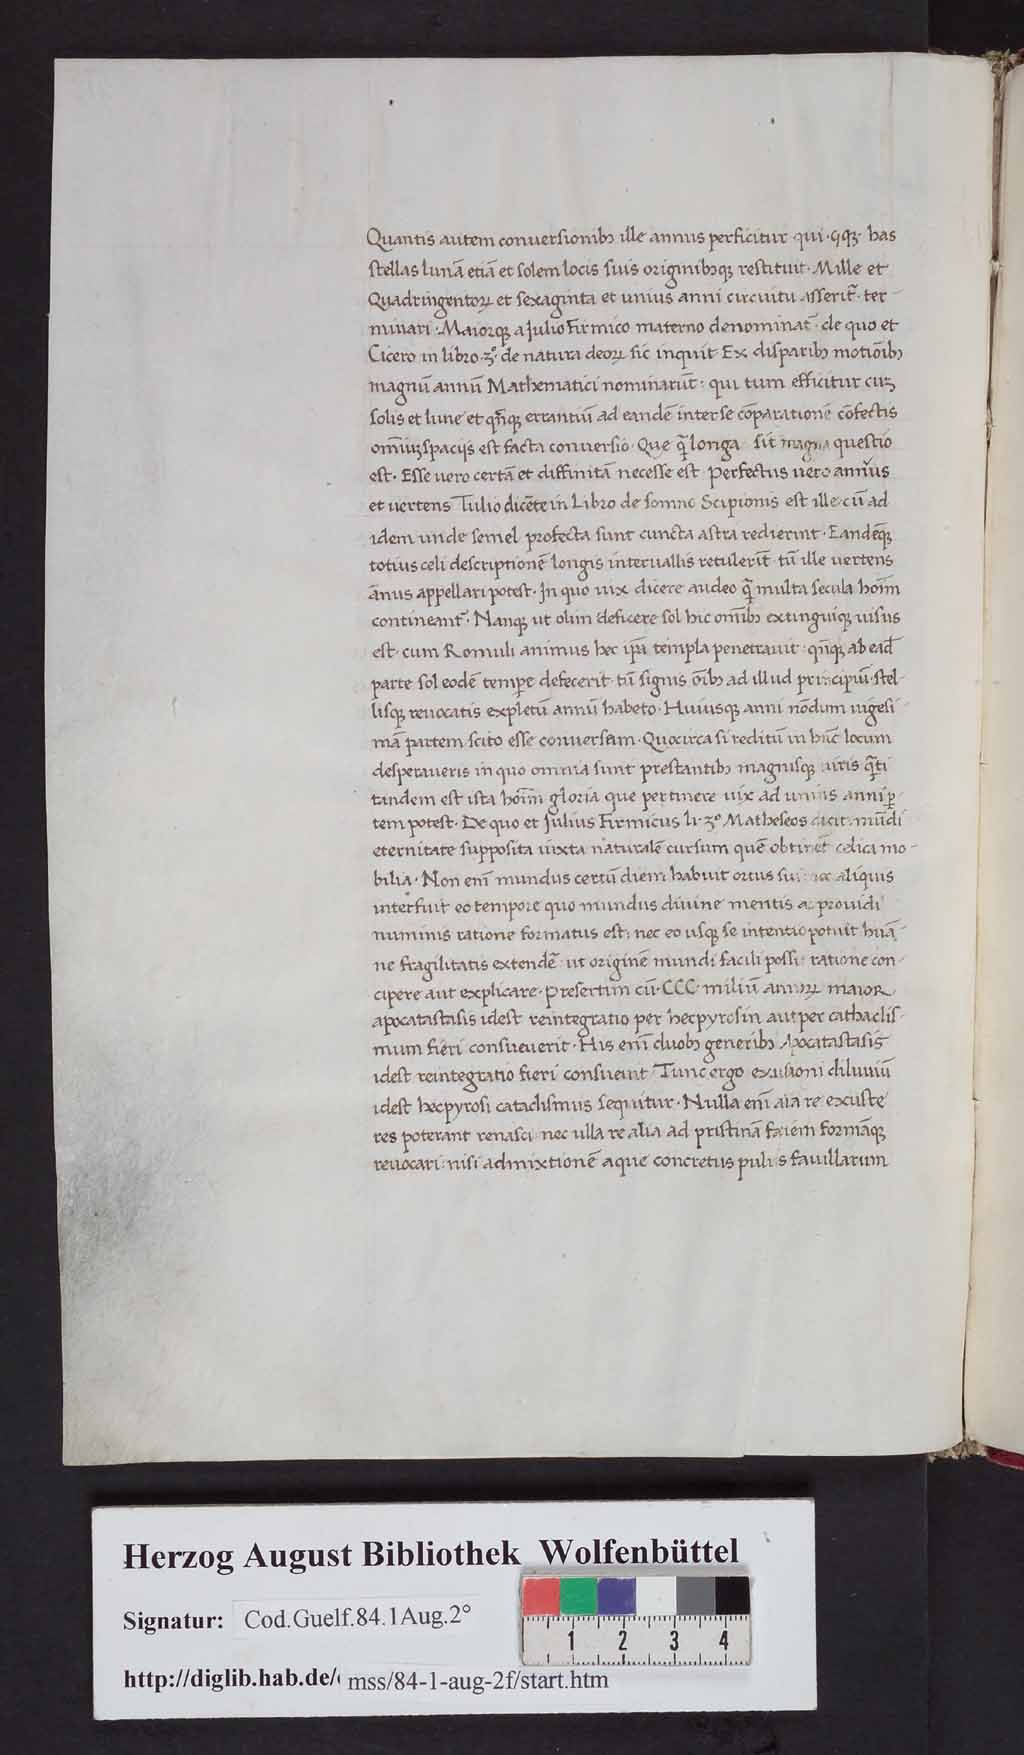 Quantis autem conuersionibꝫ ille annus perficitur qui·qꝫ· has
stellas lunā etiā et solem locis suis originibꝫqꝫ restituit· Mille et
Quadringentoꝝ et sexaginta et unius anni circuitu asserit̃· ter-
minari· Maiorqꝫ a Julio Firmico materno denominat̃· de quo et
Cicero in libro ·3°· de natura deoꝝ sic inquit Ex disparibꝫ motiōibꝫ
magnū annū Mathematici nominarūt: qui tum efficitur cuꝫ
solis et lune et qn̄qꝫ errantiū ad eandē inter se cōparationē cōfectis
om̄iuꝫ spacijs est facta conuersio· Que q̄ longa sit magna questio
est· Esse uero certā et diffinitā necesse est· Perfectus uero annus
et uertens Tulio dicēte in Libro de somno Scipionis est ille· cū ad
idem unde semel profecta sunt cuncta astra redierint· Eandēqꝫ
totius celi descriptionē longis interuallis retulerīt· tū ille uertens
ānus appellari potest· In quo uix dicere audeo q̄ multa secula hoīm
contineant̃· Nanqꝫ ut olim deficere sol hic om̄ibꝫ extinguiqꝫ uisus
est· cum Romuli animus hec ip̄a templa penetrauit· qn̄qꝫ ab ead̄
parte sol eodē temp̄e defecerit· tū signis ōibꝫ ad illud principiū· stel-
lisqꝫ reuocatis expletū annū habeto· Huiusqꝫ anni nōdum uigesi-
mā partem scito esse conuersam· Quocirca si reditū in hūc locum
desperaueris in quo omnia sunt prestantibꝫ magnisqꝫ uiris q̄ti
tandem est ista hoīm gloria que pertinere uix ad unius anni p̱-
tem potest· De quo et Julius Firmicus li· 3° Matheseos dicit: mūdi
eternitate supposita iuxta naturalē cursum quē obtinēt celica mo-
bilia· Non enī mundus certū diem habuit ortus sui nec aliquis
interfuit eo tempore quo mundus diuine mentis ac prouidi
numinis ratione formatus est: nec eo usqꝫ se intentio potuit huā-
ne fragilitatis extendē· ut originē mundi facili possit ratione con-
cipere aut explicare· presertim cū· CCC· miliū annoꝝ maior
apocatastasis idest reintegratio per hecpyrosin aut per cathaclis-
mum fieri consueuerit· His enī duobꝫ generibꝫ Apocatastasis
idest reintegratio fieri consueuit· Tunc ergo exustioni diluuiū
idest hecpyrosi cataclismus sequitur· Nulla enī alia re exuste
res poterant renasci· nec ulla re alia ad pristinā faciem formāqꝫ
reuocari: nisi admixtionē aque concretus puluis fauillarum
Herzog August Bibliothek Wolfenbüttel
Signatur: Cod.Guelf.84.1Aug.2°
1 2 3 4
http://diglib.hab.de/ mss/84-1-aug-2f/start.htm